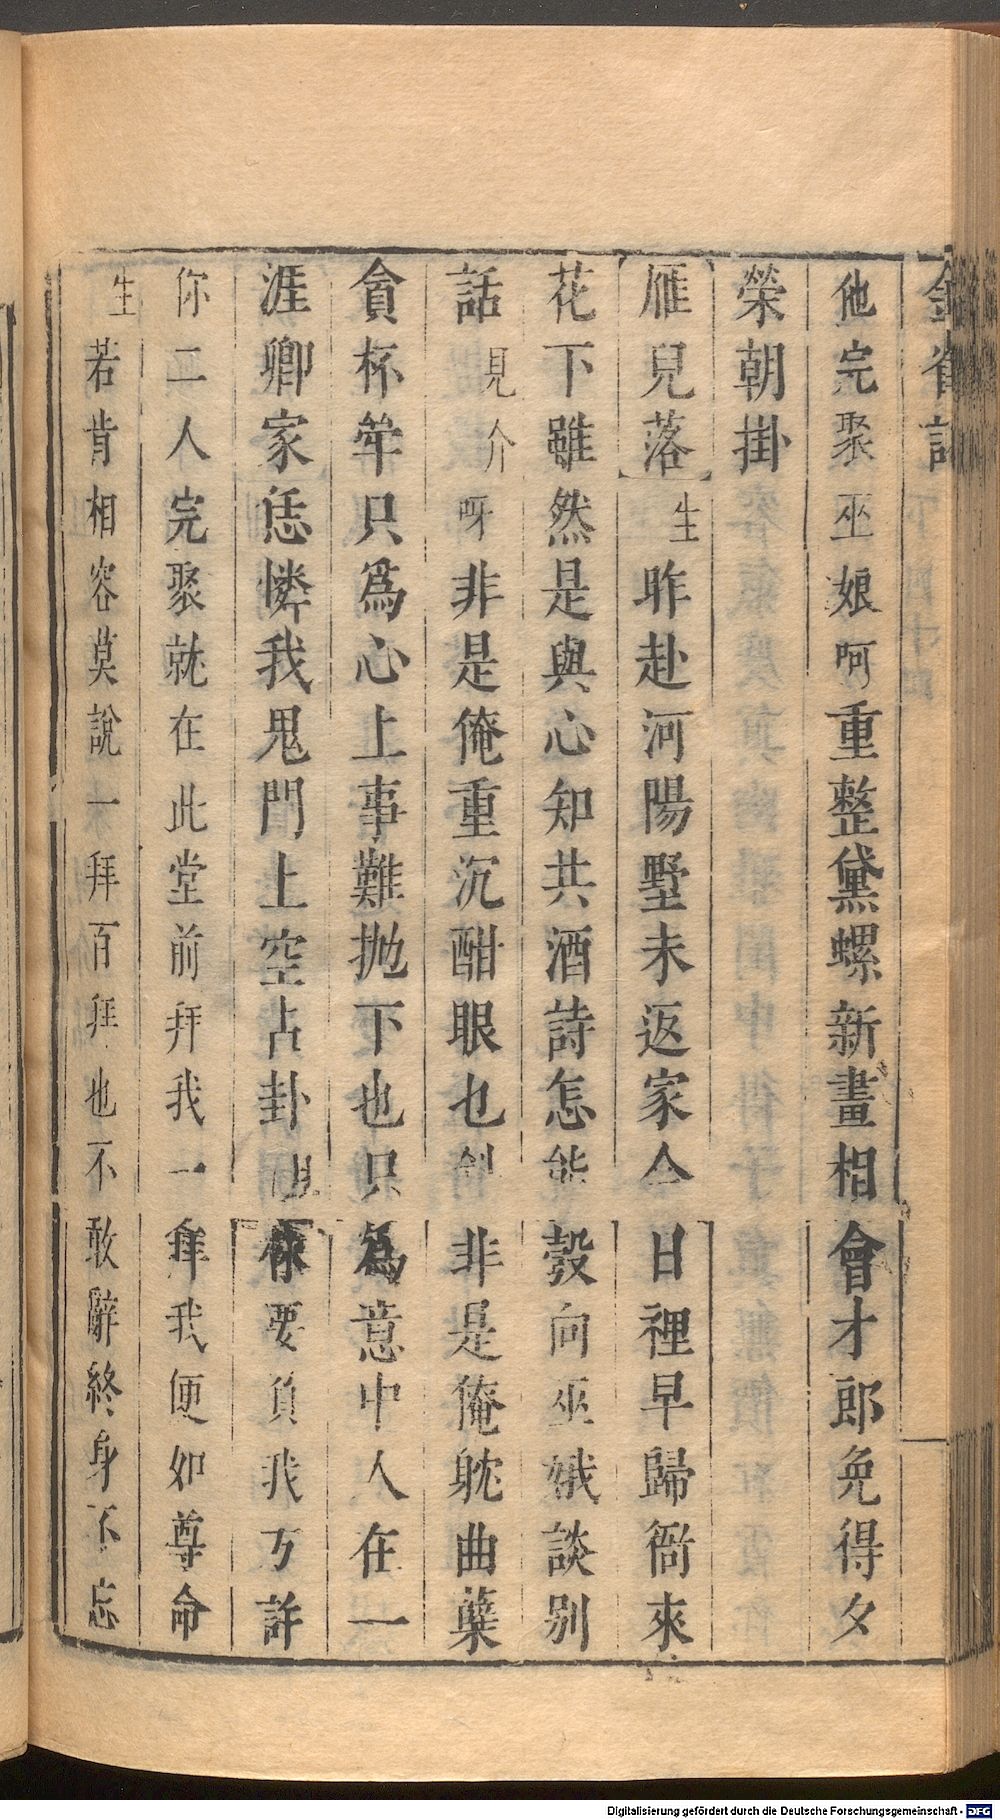 金雀記
他完聚巫娘呵重整黛螺新畫相會才郎免得夕
榮朝掛
雁兒落生昨赴河陽墅未返家今日裡早歸衙來
花下雖然是與心知共酒詩怎能彀向巫娥談别
話見介呀非是俺重沉酣眼乜斜非是俺躭曲蘖
貪杯斝只爲心上事難抛下也只為意中人在一
涯卿家恁憐我鬼門上空占卦旦你要負我方許
你二人完聚就在此堂前拜我一拜我便如尊命
生若肯相容莫說一拜百拜也不敢辭終身不忘
Digitalisierung gefördert durch die Deutsche Forschungsgemeinschaft - DFG